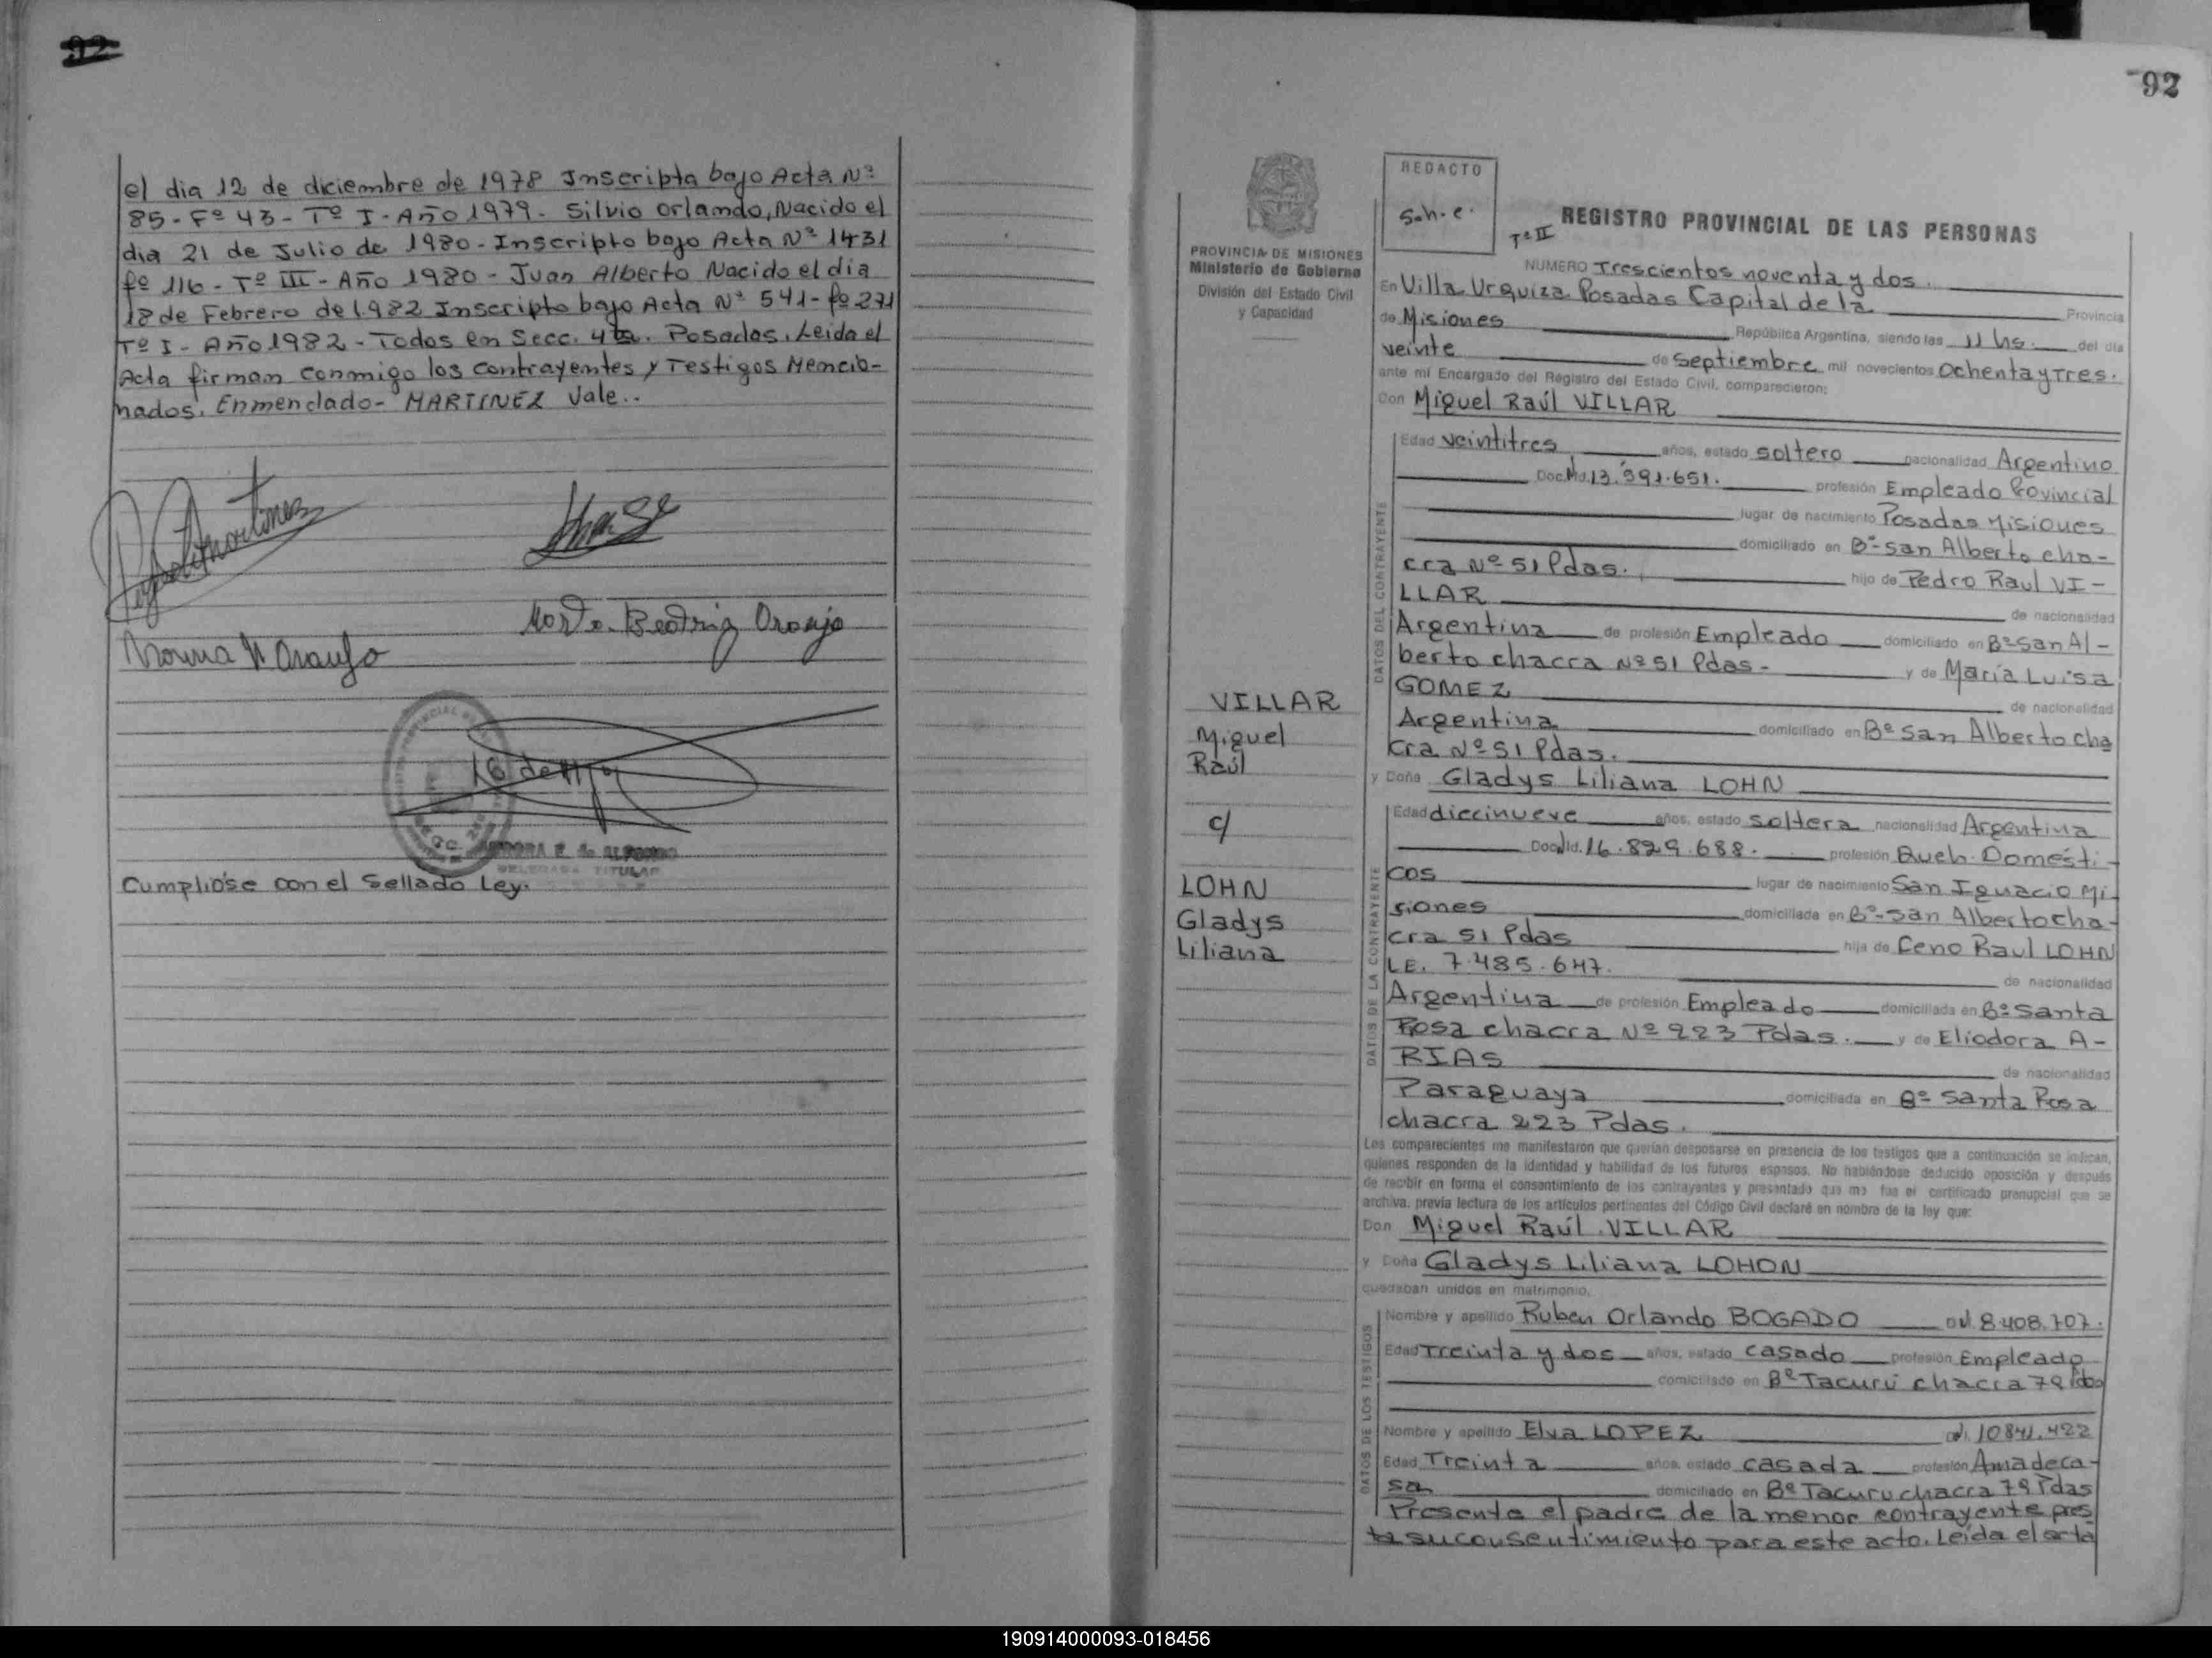 92
el dia 12 de diciembre de 1978 Inscripta bajo Acta Nº
85 - Fº 43 - Tº I - Año 1979 - Silvio Orlando, Nacido el
dia 21 de Julio de 1980 - Inscripto bajo Acta Nº 1431
fº 116 - Tº III - Año 1980 - Juan Alberto Nacido el dia
18 de Febrero de 1.982 Inscripto bajo Acta Nº 541 - fº 271
Tº I - Año 1982 - Todos en Secc. 4ta. Posadas. Leida el
Acta firman conmigo los contrayentes y Testigos Mencio-
nados. Enmendado - MARTINEZ Vale..
Norma Araujo
Beatriz Araujo
Cumplióse con el Sellado Ley.
92
REDACTO
S.h.e.
PROVINCIA DE MISIONES
Ministerio de Gobierno
División del Estado Civil
y Capacidad
Tº II
REGISTRO PROVINCIAL DE LAS PERSONAS
NUMERO Trescientos noventa y dos.
En Villa Urquiza Posadas Capital de la Provincia
de Misiones República Argentina, siendo las 11 hs. del día
veinte de septiembre mil novecientos Ochenta y Tres.
ante mi Encargado del Registro del Estado Civil, comparecieron:
Don Miguel Raúl VILLAR
DATOS DEL CONTRAYENTE
Edad veintitres años, estado soltero nacionalidad Argentino
Doc. 13.591.651. profesión Empleado Provincial
lugar de nacimiento Posadas Misiones
domiciliado en Bº San Alberto cha-
cra Nº 51 Pdas. hijo de Pedro Raul VI-
LLAR de nacionalidad
Argentina de profesión Empleado domiciliado en Bº San Al-
berto chacra Nº 51 Pdas - y de María Luisa
GOMEZ de nacionalidad
Argentina domiciliado en Bº San Alberto cha
cra Nº 51 Pdas.
VILLAR
Miguel
Raúl
c/
LOHN
Gladys
Liliana
y Doña Gladys Liliana LOHN
DATOS DE LA CONTRAYENTE
Edad diecinueve años, estado soltera nacionalidad Argentina
Doc. Id. 16.829.688. profesión Queh. Domésti-
cos lugar de nacimiento San Ignacio Mi-
siones domiciliada en Bº San Alberto cha-
cra 51 Pdas hija de Ceno Raul LOHN
LE. 7.485.647. de nacionalidad
Argentina de profesión Empleado domiciliada en Bº Santa
Rosa chacra Nº 223 Pdas. y de Eliodora A-
RIAS de nacionalidad
Paraguaya domiciliada en Bº Santa Rosa
chacra 223 Pdas.
Los comparecientes me manifestaron que querían desposarse en presencia de los testigos que a continuación se indican,
quienes responden de la identidad y habilidad de los futuros esposos. No habiéndose deducido oposición y después
de recibir en forma el consentimiento de los contrayentes y presentado que me fue el certificado prenupcial que se
archiva, previa lectura de los artículos pertinentes del Código Civil declaré en nombre de la ley que:
Don Miguel Raúl VILLAR
y Doña Gladys Liliana LOHON
quedaban unidos en matrimonio.
DATOS DE LOS TESTIGOS
Nombre y apellido Ruben Orlando BOGADO 8.408.707.
Edad Treinta y dos años, estado casado profesión Empleado
domiciliado en Bº Tacurú chacra 79 Pdas
Nombre y apellido Elva LOPEZ 10841.422
Edad Treinta años, estado casada profesión Ama de ca-
sa domiciliado en Bº Tacuru chacra 79 Pdas
Presente el padre de la menor contrayente pres-
ta su consentimiento para este acto. Leída el acta
190914000093-018456